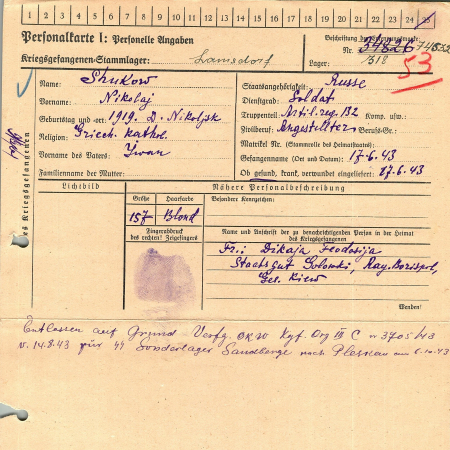 1 2 3 4 5 6 7 8 9 10 11 12 13 14 15 16 17 18 19 20 21 22 23 24 25
Personalkarte I: Personelle Angaben
Kriegsgefangenen-Stammlager: Lamsdorf
Beschriftung der Erkennungsmarke
Nr. 34826
Lager: /318
53
Name: Shukow
Vorname: Nikolaj
Geburtstag und -ort: 1919. D. Nikoljsk
Religion: Griech. Kathol.
Vorname des Vaters: Iwan
Familienname der Mutter:
Staatsangehörigkeit: Russe
Dienstgrad: Soldat
Truppenteil: Artil. reg. 132 Komp. usw.:
Zivilberuf: Angestellter Berufs-Gr.:
Matrikel Nr. (Stammrolle des Heimatstaates):
Gefangennahme (Ort und Datum): 17.6.43
Ob gesund, krank, verwundet eingeliefert: 17.6.43
des Kriegsgefangenen
Lichtbild
Nähere Personalbeschreibung
Größe Haarfarbe
157 Blond
Besondere Kennzeichen:
Fingerabdruck
des rechten! Zeigefingers
Name und Anschrift der zu benachrichtigenden Person in der Heimat
des Kriegsgefangenen
Fr.: Dikaja Feodosija
Staatsgut Solowki, Ray. Borispol,
Geb. Kiew
Wenden!
Entlassen auf Grund Verfg. OKW Kgf. Org III C nr 3705/43
v. 14.8.43 für SS Sonderlager Sandberge nach Pleskau am 6.10.43